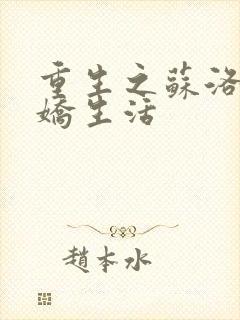 重生之蘇洛
嬌生活
趙本水